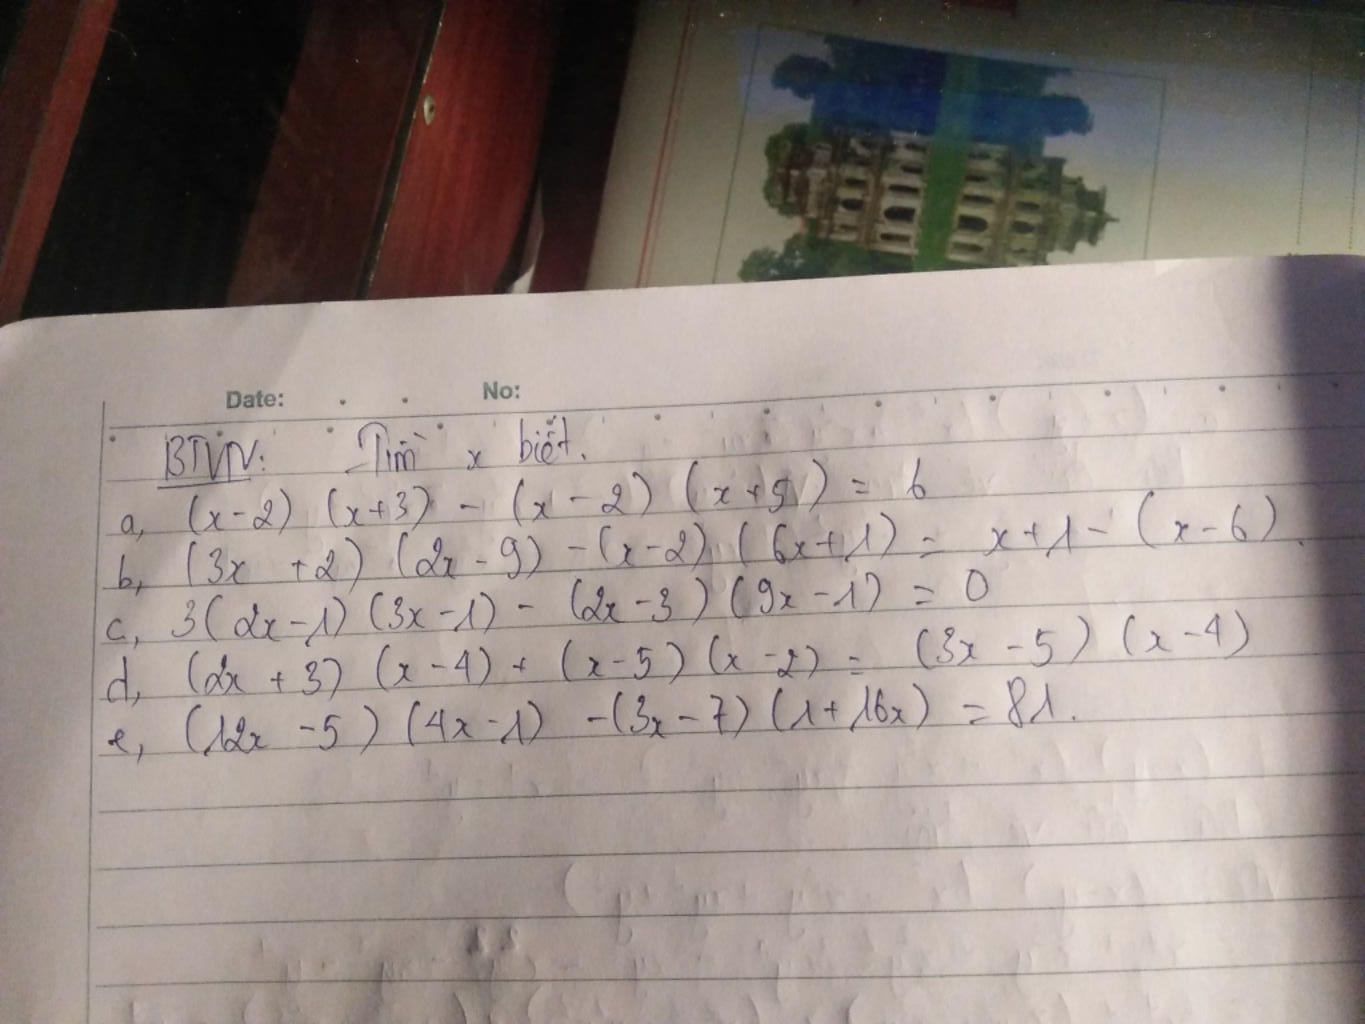 Date: No:
BTVN: Tìm x biết.
a, (x-2) (x+3) - (x-2) (x+5) = 6
b, (3x +2) (2x-9) - (x-2) (6x+1) = x+1-(x-6).
c, 3(2x-1) (3x-1) - (2x-3) (9x-1) = 0
d, (2x +3) (x-4) + (x-5) (x-2) = (3x-5) (x-4)
e, (12x -5) (4x-1) -(3x-7) (1+16x) = 81.